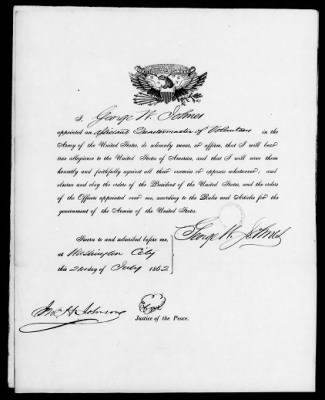 I, George W. Holmes
appointed an Assistant Quartermaster of Volunteers in the
Army of the United States, do solemnly swear, or affirm, that I will bear
true allegiance to the United States of America, and that I will serve them
honestly and faithfully against all their enemies or opposers whatsoever; and
observe and obey the orders of the President of the United States, and the orders
of the Officers appointed over me, according to the Rules and Articles for the
government of the Armies of the United States.
Sworn to and subscribed before me,
at Washington City
this 21st day of July 1862
George W. Holmes
Jno. H. Johnson
Justice of the Peace.